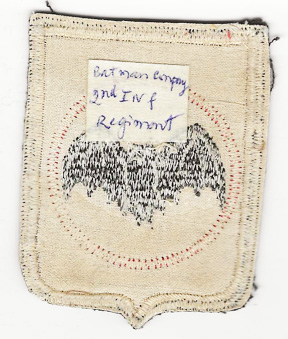 Batman Company
2nd INf
Regiment